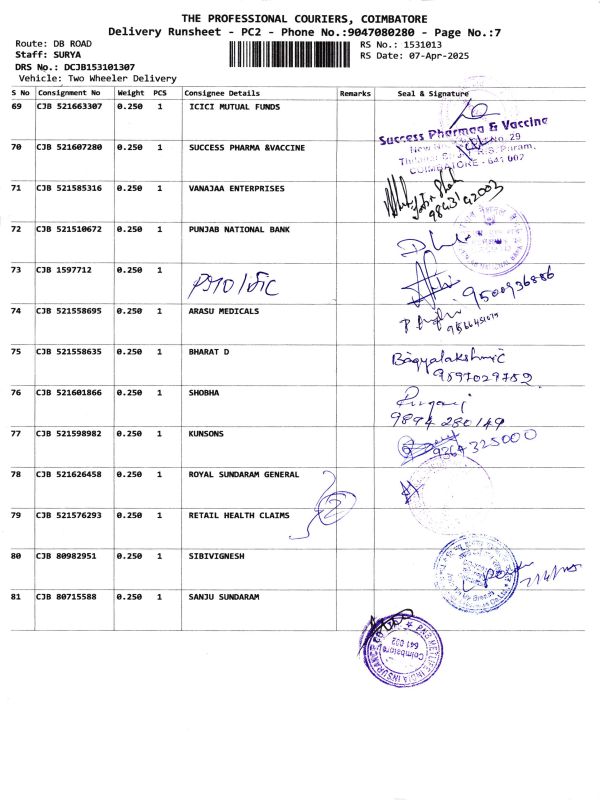 THE PROFESSIONAL COURIERS, COIMBATORE
Delivery Runsheet - PC2 - Phone No.:9047080280 - Page No.:7
Route: DB ROAD
RS No.: 1531013
Staff: SURYA
RS Date: 07-Apr-2025
DRS No.: DCJB153101307
Vehicle: Two Wheeler Delivery
S No Consignment No Weight PCS Consignee Details Remarks Seal & Signature
69 CJB 521663307 0.250 1 ICICI MUTUAL FUNDS
Success Pharma & Vaccine
No. 29
R.S. Puram,
COIMBATORE - 641 002
70 CJB 521607280 0.250 1 SUCCESS PHARMA &VACCINE
71 CJB 521585316 0.250 1 VANAJAA ENTERPRISES
9843142003
72 CJB 521510672 0.250 1 PUNJAB NATIONAL BANK
73 CJB 1597712 0.250 1
9500936886
74 CJB 521558695 0.250 1 ARASU MEDICALS
75 CJB 521558635 0.250 1 BHARAT D
Bagyalakshmi
9597029752
76 CJB 521601866 0.250 1 SHOBHA
9894 280149
77 CJB 521598982 0.250 1 KUNSONS
9364325000
78 CJB 521626458 0.250 1 ROYAL SUNDARAM GENERAL
79 CJB 521576293 0.250 1 RETAIL HEALTH CLAIMS
80 CJB 80982951 0.250 1 SIBIVIGNESH
81 CJB 80715588 0.250 1 SANJU SUNDARAM
PNB METLIFE INDIA INSURANCE
Coimbatore
641 002